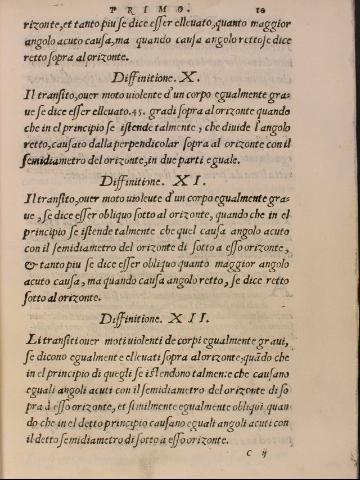 PRIMO. 10
rizonte, et tanto piu se dice esser elleuato, quanto maggior
angolo acuto causa, ma quando causa angolo retto se dice
retto sopra al orizonte.
Diffinitione. X.
Il transito, ouer moto violente d'un corpo egualmente gra-
ue se dice esser elleuato. 45. gradi sopra al orizonte quando
che in el principio se istende talmente, che diuide l'angolo
retto, causato dalla perpendicolar sopra al orizonte con il
semidiametro del orizonte, in due parti eguale.
Diffinitione. XI.
Il transito, ouer moto violente d'un corpo egualmente gra-
ue, se dice esser obliquo sotto al orizonte, quando che in el
principio se istende talmente che quel causa angolo acuto
con il semidiametro del orizonte di sotto a esso orizonte,
& tanto piu se dice esser obliquo quanto maggior angolo
acuto causa, ma quando causa angolo retto, se dice retto
sotto al orizonte.
Diffinitione. XII.
Li transiti ouer moti violenti de corpi egualmente graui,
se dicono egualmente elleuati sopra al orizonte, quādo che
in el principio di quegli se istendono talmente che causano
eguali angoli acuti con il semidiametro del orizonte di so
pra à esso orizonte, et similmente egualmente obliqui quan
do che in el detto principio causano eguali angoli acuti con
il detto semidiametro di sotto a esso orizonte.
C ij